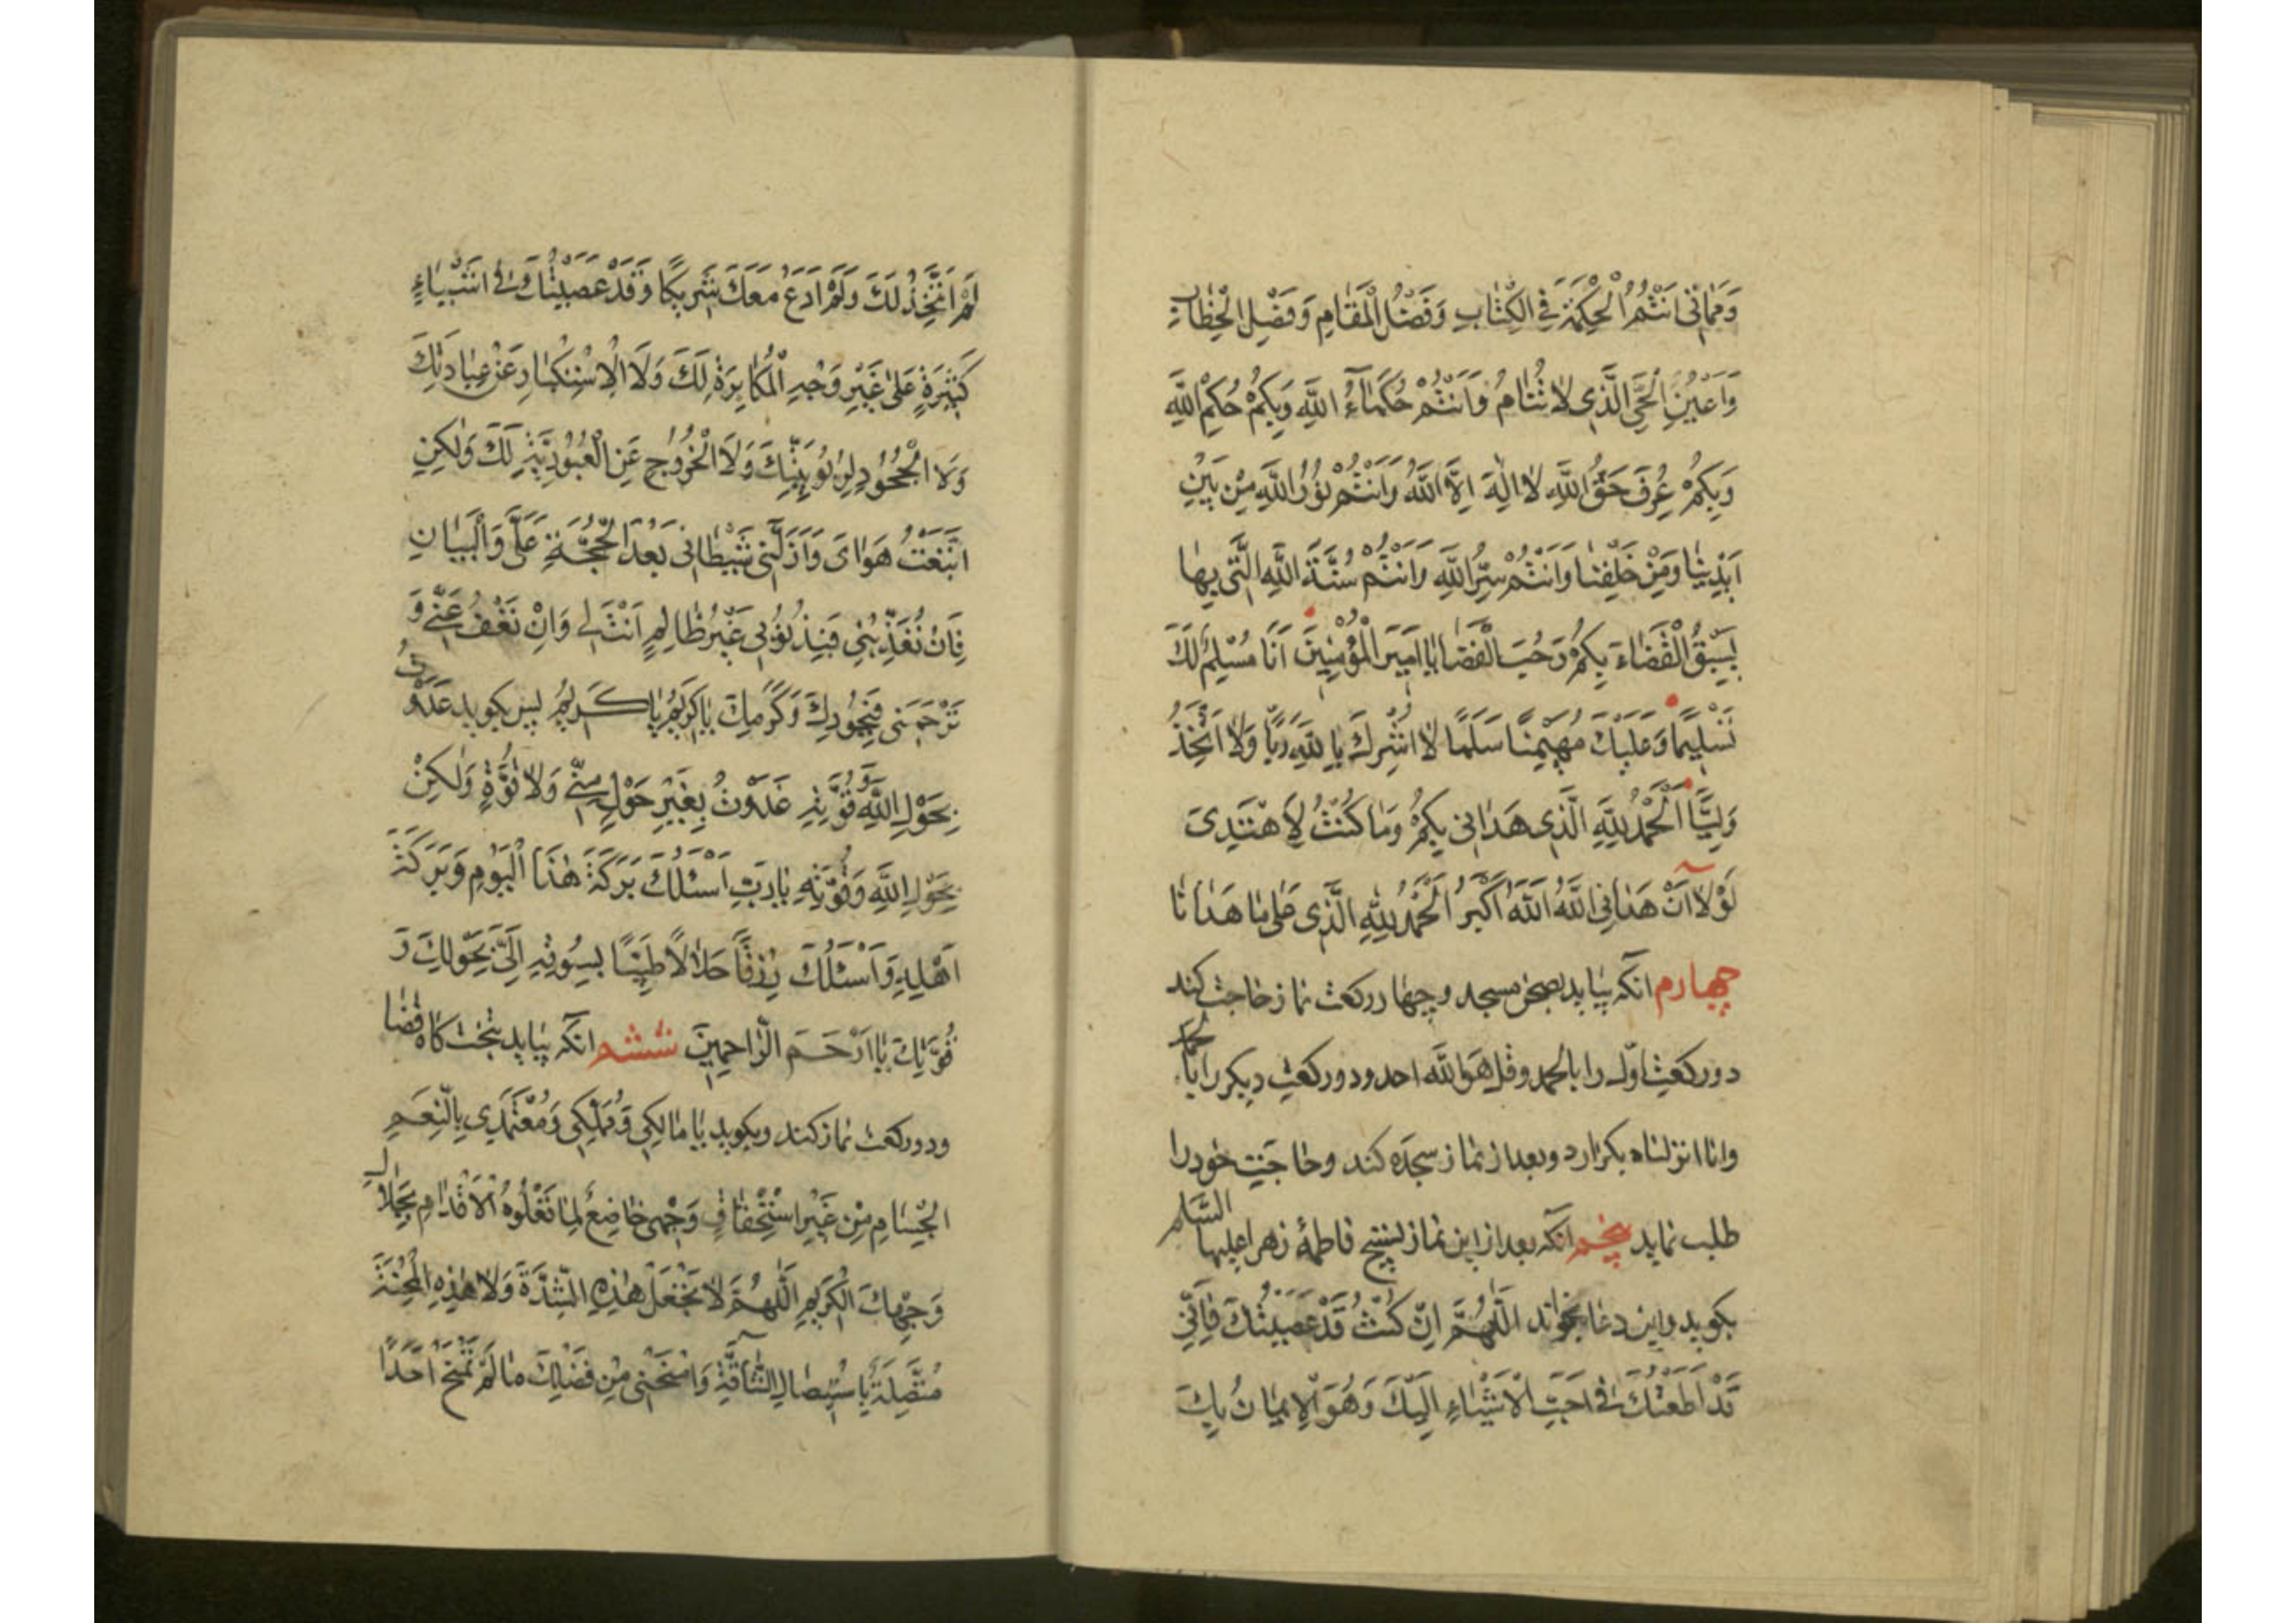 وَمَمَاتِی اَنْتُمُ الْحِکْمَةُ فِی الْکِتَابِ وَفَضْلُ الْمَقَامِ وَفَصْلُ الْخِطَابِ
وَاَعْیُنُ الْحَیِّ الَّذِی لَا تَنَامُ وَاَنْتُمْ حُکَمَآءُ اللّٰهِ وَبِکُمْ حُکْمُ اللّٰهِ
وَبِکُمْ عُرِفَ حَقُّ اللّٰهِ لَا اِلٰهَ اِلَّا اللّٰهُ وَاَنْتُمْ نُوْرُ اللّٰهِ مِنْ بَیْنِ
اَیْدِیْنَا وَمِنْ خَلْفِنَا وَاَنْتُمْ سِرُّ اللّٰهِ وَاَنْتُمْ سُنَّةُ اللّٰهِ الَّتِی بِهَا
سَبَقَ الْقَضَاءَ بِکُمْ وَحُبَ الْقَضَا یَا اَمِیرَ الْمُؤْمِنِینَ اَنَا مُسْلِمٌ لَکَ
تَسْلِیْمًا وَعَلَیْکَ مُهَیْمِنًا سَلَمًا لَا اُشْرِکُ بِاللّٰهِ رَبًّا وَلَا اَتَّخِذُ
وَلِیًّا اَلْحَمْدُ لِلّٰهِ الَّذِی هَدَانِی بِکُمْ وَمَا کُنْتُ لِاَهْتَدِیَ
لَوْلَا اَنْ هَدَانِی اللّٰهُ اَللّٰهُ اَکْبَرُ اَلْحَمْدُ لِلّٰهِ الَّذِی عَلٰی مَا هَدَانَا
چهارم انکه بیاید بصحن مسجد و چهار رکعت نماز حاجت کند
دو رکعت اوّل را بالحمد و قل هو اللّٰه احد و دو رکعت دیکر را با الحمد
وانا انزلناه بکزارد و بعد از نماز سجده کند و حاجت خود را
طلب نماید پنجم انکه بعد از این نماز تسبیح فاطمهٔ زهرا علیها السلام
بکوید و این دعا بخواند اَللّٰهُمَّ اِنْ کُنْتُ قَدْ عَصَیْتُکَ فَاِنِّی
قَدْ اَطَعْتُکَ فِی اَحَبِّ الْاَشْیَاءِ اِلَیْکَ وَهُوَ الْاِیمَانُ بِکَ
لَمْ اَتَّخِذْ لَکَ وَلَمْ اَدَعُ مَعَکَ شَرِیکًا وَقَدْ عَصَیْتُکَ فِی اَشْیَاءٍ
کَثِیْرَةٍ عَلٰی غَیْرِ وَجْهِ الْمُکَابِرَةِ لَکَ وَلَا الْاِسْتِکْبَارِ عَنْ عِبَادَتِکَ
وَلَا الْجُحُوْدِ لِرُبُوْبِیَّتِکَ وَلَا الْخُرُوْجِ عَنِ الْعُبُوْدِیَّةِ لَکَ وَلٰکِنِ
اتَّبَعْتُ هَوَایَ وَاَزَلَّنِی شَیْطَانِی بَعْدَ الْحُجَّةِ عَلَیَّ وَالْبَیَانِ
فَاِنْ تُعَذِّبْنِی فَبِذُنُوْبِی غَیْرُ ظَالِمٍ اَنْتَ لِی وَاِنْ تَعْفُ عَنِّی وَ
تَرْحَمْنِی فَبِجُوْدِکَ وَکَرَمِکَ یَا کَرِیْمُ یَا کَرِیْمُ پس بکوید غَدَوْتُ
بِحَوْلِ اللّٰهِ وَقُوَّتِهِ غَدَوْتُ بِغَیْرِ حَوْلٍ مِنِّی وَلَا قُوَّةٍ وَلٰکِنْ
بِحَوْلِ اللّٰهِ وَقُوَّتِهِ یَا رَبِّ اَسْئَلُکَ بَرَکَةَ هٰذَا الْیَوْمِ وَبَرَکَةَ
اَهْلِهِ وَاَسْئَلُکَ رِزْقًا حَلَالًا طَیِّبًا یَسُوْقُهُ اِلَیَّ بِحَوْلِکَ وَ
قُوَّتِکَ یَا اَرْحَمَ الرَّاحِمِیْنَ ششم انکه بیاید بتخت کاه قضا
ودو رکعت نماز کند وبکوید یَا مَالِکِی وَمُمَلِّکِی وَمُعْتَمَدِی بِالنِّعَمِ
الْجِسَامِ مِنْ غَیْرِ اسْتِحْقَاقٍ وَجْهِی خَاضِعٌ لِمَا تَعْلُوهُ الْاَقْدَامُ بِجَلَالِ
وَجْهِکَ الْکَرِیْمِ اَللّٰهُمَّ لَا تَجْعَلْ هٰذِهِ الشِّدَّةَ وَلَا هٰذِهِ الْمِحْنَةَ
مُتَّصِلَةً بِاسْتِیْصَالِ الشَّاْفَةِ وَامْنَحْنِی مِنْ فَضْلِکَ مَا لَمْ تَمْنَحْ اَحَدًا